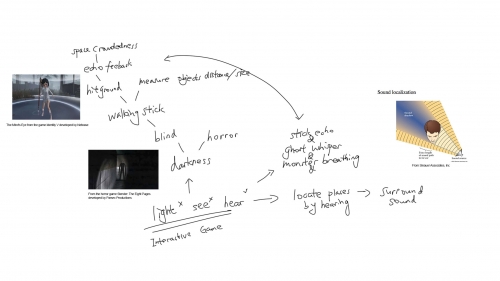 space crowdedness
echo feedback
hit ground
measure objects distance/size
walking stick
blind
horror
darkness
light x see x hear ✓
Interactive Game
stick echo
&
ghost whisper
&
monster breathing
locate places
by hearing
surround
sound
Sound localization
The Mind's Eye from the game Identity V developed by Netease
From the horror game Slender: The Eight Pages
developed by Parsec Productions